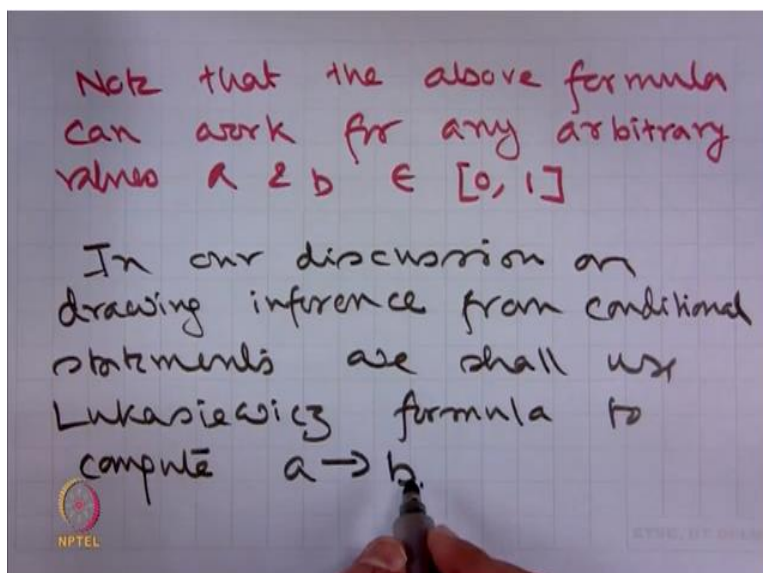 Note that the above formula
can work for any arbitrary
values a & b ∈ [0, 1]
In our discussion on
drawing inference from conditional
statements we shall use
Lukasiewicz formula to
compute a → b.
NPTEL